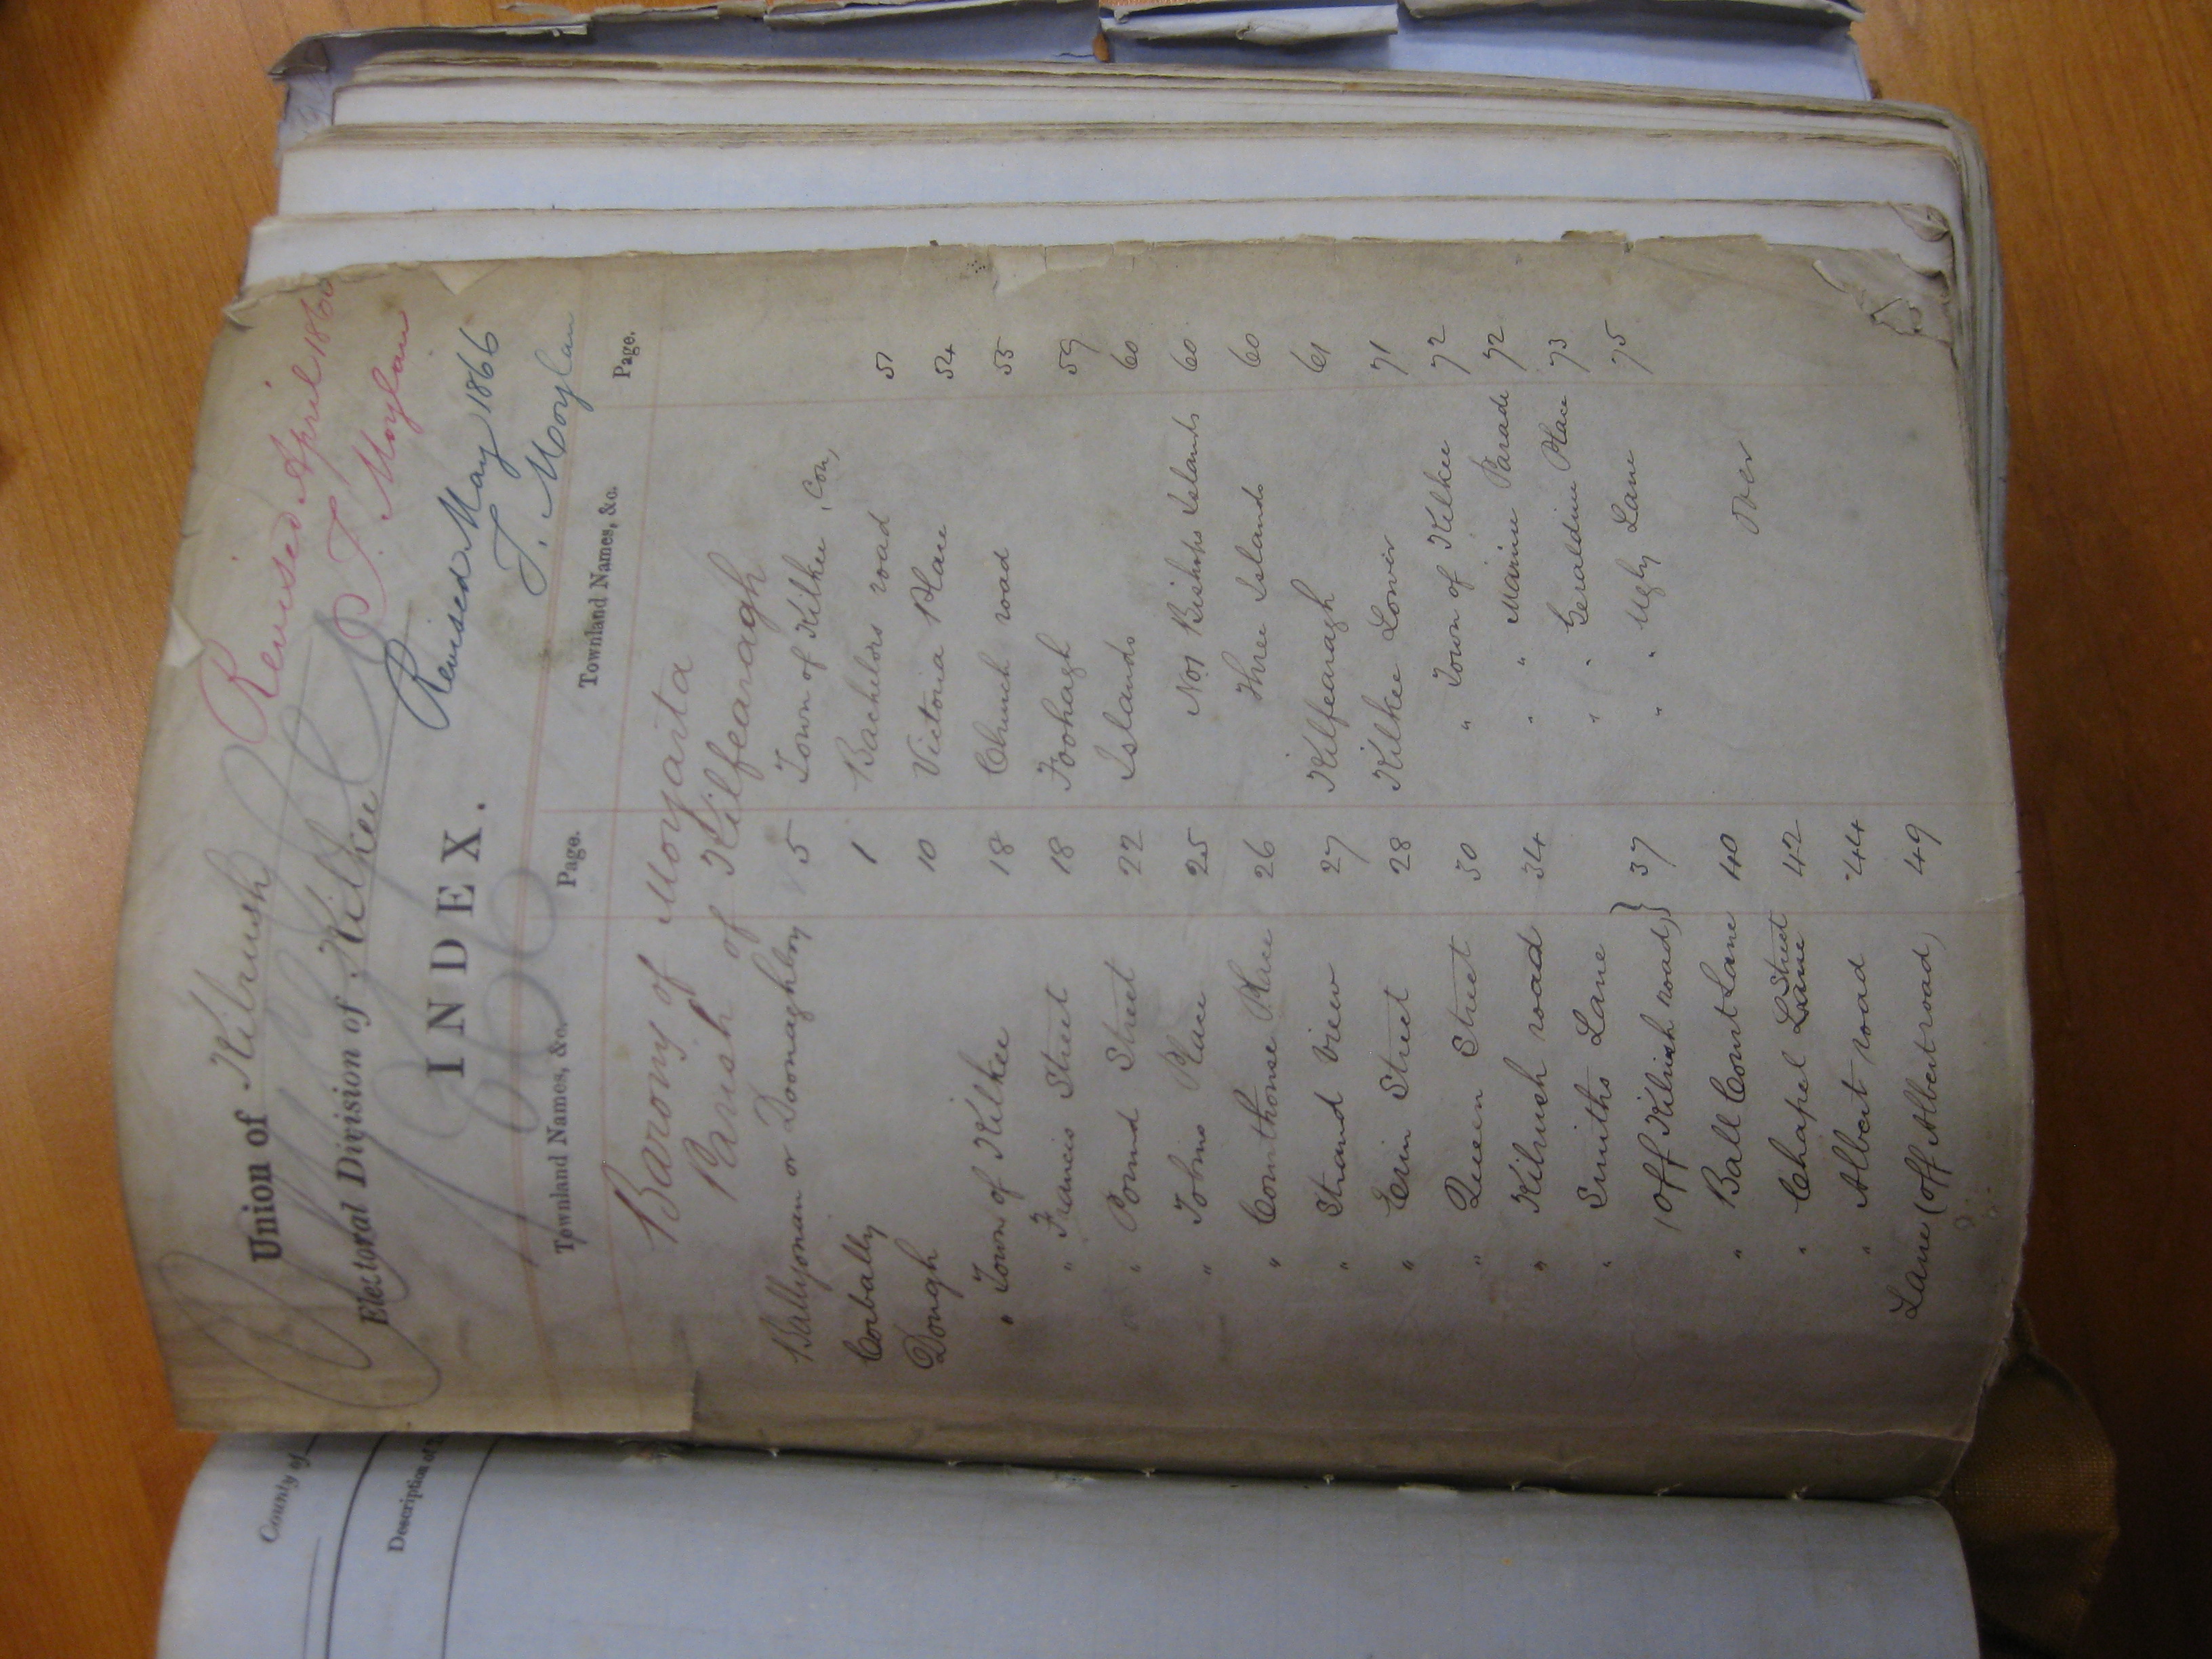 Revised April 1860
P. T. Moylan
Union of Kilrush
Electoral Division of Kilkee
Revised May 1866
T. Moylan
INDEX.
1866
Townland Names, &c. Page. Townland Names, &c. Page.
Barony of Moyarta
Parish of Kilfearagh
Ballyonan or Doonaghboy 5
Corbally 1
Dough 10
" Town of Kilkee 18
" Francis Street 18
" Pound Street 22
" Tobins Place 25
" Courthouse Place 26
" Strand View 27
" Erin Street 28
" Queen Street 30
" Kilrush road 34
" Smiths Lane
(off Kilrush road) } 37
" Ball Court Lane 40
" Chapel Lane Street 42
" Albert road 44
Lane (off Albert road) 49
Town of Kilkee, Con,
Bachelors road 51
Victoria Place 54
Church road 55
Foohagh 59
Islands 60
No1 Bishops Islands 60
Three Islands 60
Kilfearagh 61
Kilkee Lower 71
" Town of Kilkee 72
" " Marine Parade 72
" " Geraldine Place 73
" " Ugly Lane 75
Over
County of
Description of